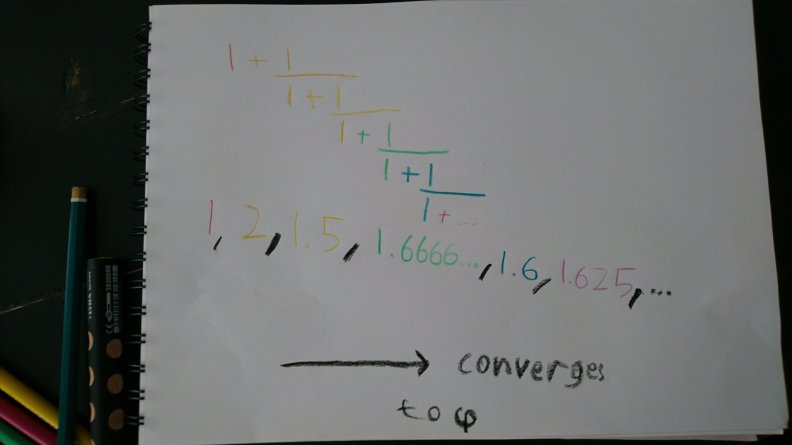 1 + 1
1 + 1
1 + 1
1 + 1
1 + ...
1, 2, 1.5, 1.6666..., 1.6, 1.625, ...
→ converges
to φ